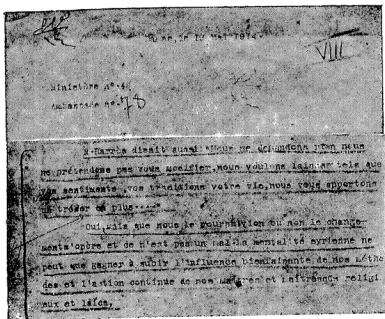 VIII
Ministère n° 4
Ambassade n° 78
M. disait aussi: Nous ne demandons non nous
ne prétendons pas vous modifier, nous voulons laisser tels que
vos sentiments, vos traditions votre vie, nous vous apportons
un trésor en plus....
Oui, mais que nous le ou non le change-
ment s'opère et ce n'est pas un mal la mentalité syrienne ne
peut que gagner à subir l'influence bienfaisante de nos métho
des et l'action continue de nos maîtres et maîtresses religi
eux et laïcs.